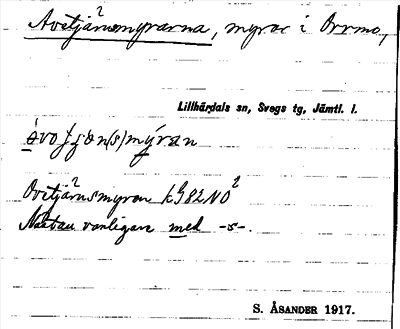 Avetjärnsmyrarna, myrar i Orrmo,
Lillhärdals sn, Svegs tg, Jämtl. l.
Ovetjärnsmyran k G82NO 2
Nästan vanligare med -s-.
S. ÅSANDER 1917.